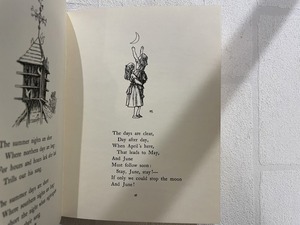 The summer nights are short
Where northern days are long:
For hours and hours lark after lark
Trills out his song.
The summer days are short
The days are clear,
Day after day,
When April's here,
That leads to May,
And June
Must follow soon:
Stay, June, stay!—
If only we could stop the moon
And June!